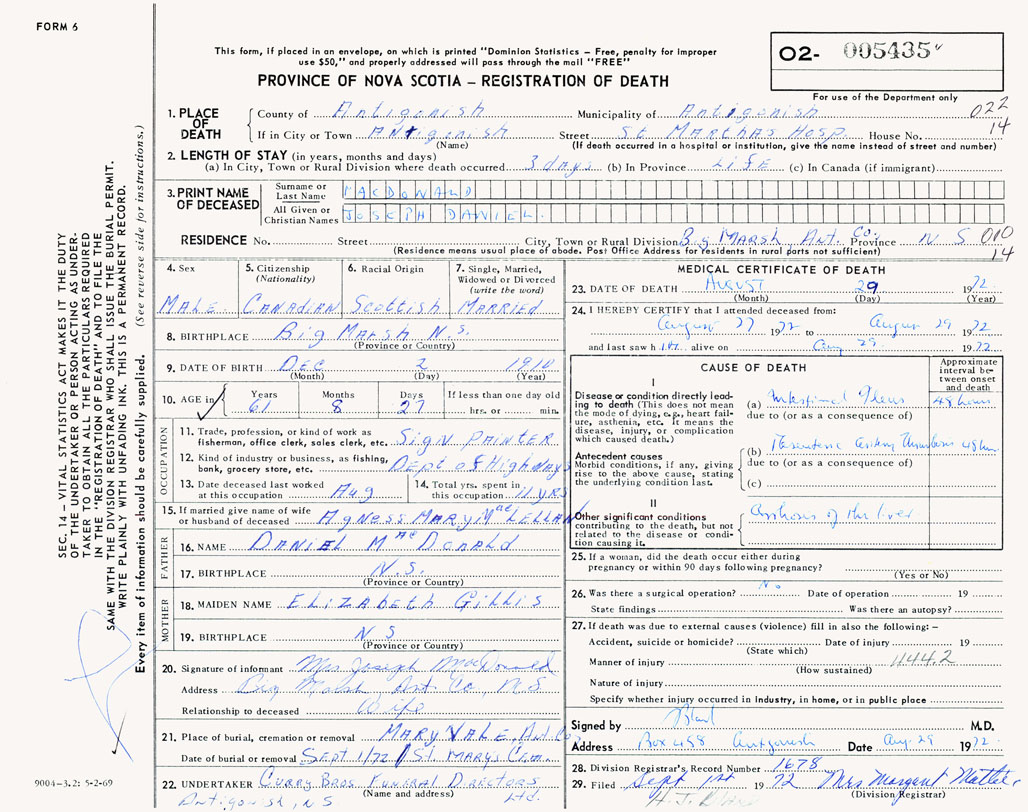 FORM 6
This form, if placed in an envelope, on which is printed "Dominion Statistics – Free, penalty for improper
use $50," and properly addressed will pass through the mail "FREE"
PROVINCE OF NOVA SCOTIA – REGISTRATION OF DEATH
O2- 005435
For use of the Department only
022
14
1. PLACE OF DEATH County of Antigonish Municipality of Antigonish
If in City or Town Antigonish Street St Marthas Hosp. House No.
(Name) (If death occurred in a hospital or institution, give the name instead of street and number)
2. LENGTH OF STAY (in years, months and days)
(a) In City, Town or Rural Division where death occurred 3 days (b) In Province Life (c) In Canada (if immigrant)
3. PRINT NAME OF DECEASED Surname or Last Name MACDONALD
All Given or Christian Names JOSEPH DANIEL.
RESIDENCE No. Street City, Town or Rural Division Big Marsh, Ant. Co. Province N S 010
14
(Residence means usual place of abode. Post Office Address for residents in rural parts not sufficient)
4. Sex 5. Citizenship (Nationality) 6. Racial Origin 7. Single, Married, Widowed or Divorced (write the word)
Male Canadian Scottish Married
8. BIRTHPLACE Big Marsh N.S.
(Province or Country)
9. DATE OF BIRTH Dec 2 1910
(Month) (Day) (Year)
10. AGE in Years Months Days If less than one day old
61 8 27 hrs. or min.
OCCUPATION
11. Trade, profession, or kind of work as
fisherman, office clerk, sales clerk, etc. Sign Painter
12. Kind of industry or business, as fishing,
bank, grocery store, etc. Dept of Highways
13. Date deceased last worked
at this occupation Aug
14. Total yrs. spent in
this occupation 11 yrs
15. If married give name of wife
or husband of deceased Agness Mary MacLellan
FATHER
16. NAME Daniel MacDonald
17. BIRTHPLACE N.S.
(Province or Country)
MOTHER
18. MAIDEN NAME Elizabeth Gillis
19. BIRTHPLACE N S
(Province or Country)
20. Signature of informant Mrs Joseph MacDonald
Address Big Marsh, Ant Co, N.S.
Relationship to deceased Wife
21. Place of burial, cremation or removal Mary Vale, Ant. Co
Date of burial or removal Sept 1/72 St Marys Cem.
22. UNDERTAKER Curry Bros Funeral Directors Ltd.
(Name and address)
Antigonish, N.S.
MEDICAL CERTIFICATE OF DEATH
23. DATE OF DEATH August 29 1972
(Month) (Day) (Year)
24. I HEREBY CERTIFY that I attended deceased from:
August 27 1972 to August 29 1972
and last saw him alive on Aug 29 1972
CAUSE OF DEATH
Approximate interval between onset and death
I
Disease or condition directly leading to death (This does not mean
the mode of dying, e.g., heart failure, asthenia, etc. It means the
disease, injury, or complication
which caused death.)
(a) Intestinal Ileus 48 hours
due to (or as a consequence of)
Antecedent causes
Morbid conditions, if any, giving
rise to the above cause, stating
the underlying condition last.
(b) Mesenteric artery thrombosis 48 hrs
due to (or as a consequence of)
(c)
II
Other significant conditions
contributing to the death, but not
related to the disease or condition causing it.
Cirrhosis of the liver
25. If a woman, did the death occur either during
pregnancy or within 90 days following pregnancy?
(Yes or No)
26. Was there a surgical operation? No Date of operation 19
State findings Was there an autopsy?
27. If death was due to external causes (violence) fill in also the following: –
Accident, suicide or homicide? Date of injury 19
(State which)
Manner of injury 444.2
(How sustained)
Nature of injury
Specify whether injury occurred in industry, in home, or in public place
Signed by M.D.
Address Box 458 Antigonish Date Aug 29 1972
28. Division Registrar's Record Number 1678
29. Filed Sept 1st 1972 Mrs Margaret
(Division Registrar)
SEC. 14 – VITAL STATISTICS ACT MAKES IT THE DUTY
OF THE UNDERTAKER OR PERSON ACTING AS UNDERTAKER TO OBTAIN ALL THE PARTICULARS REQUIRED
IN THE "REGISTRATION OF DEATH" AND TO FILE THE
SAME WITH THE DIVISION REGISTRAR WHO SHALL ISSUE THE BURIAL PERMIT.
WRITE PLAINLY WITH UNFADING INK. THIS IS A PERMANENT RECORD.
Every item of information should be carefully supplied. (See reverse side for instructions.)
9004-3.2: 5-2-69